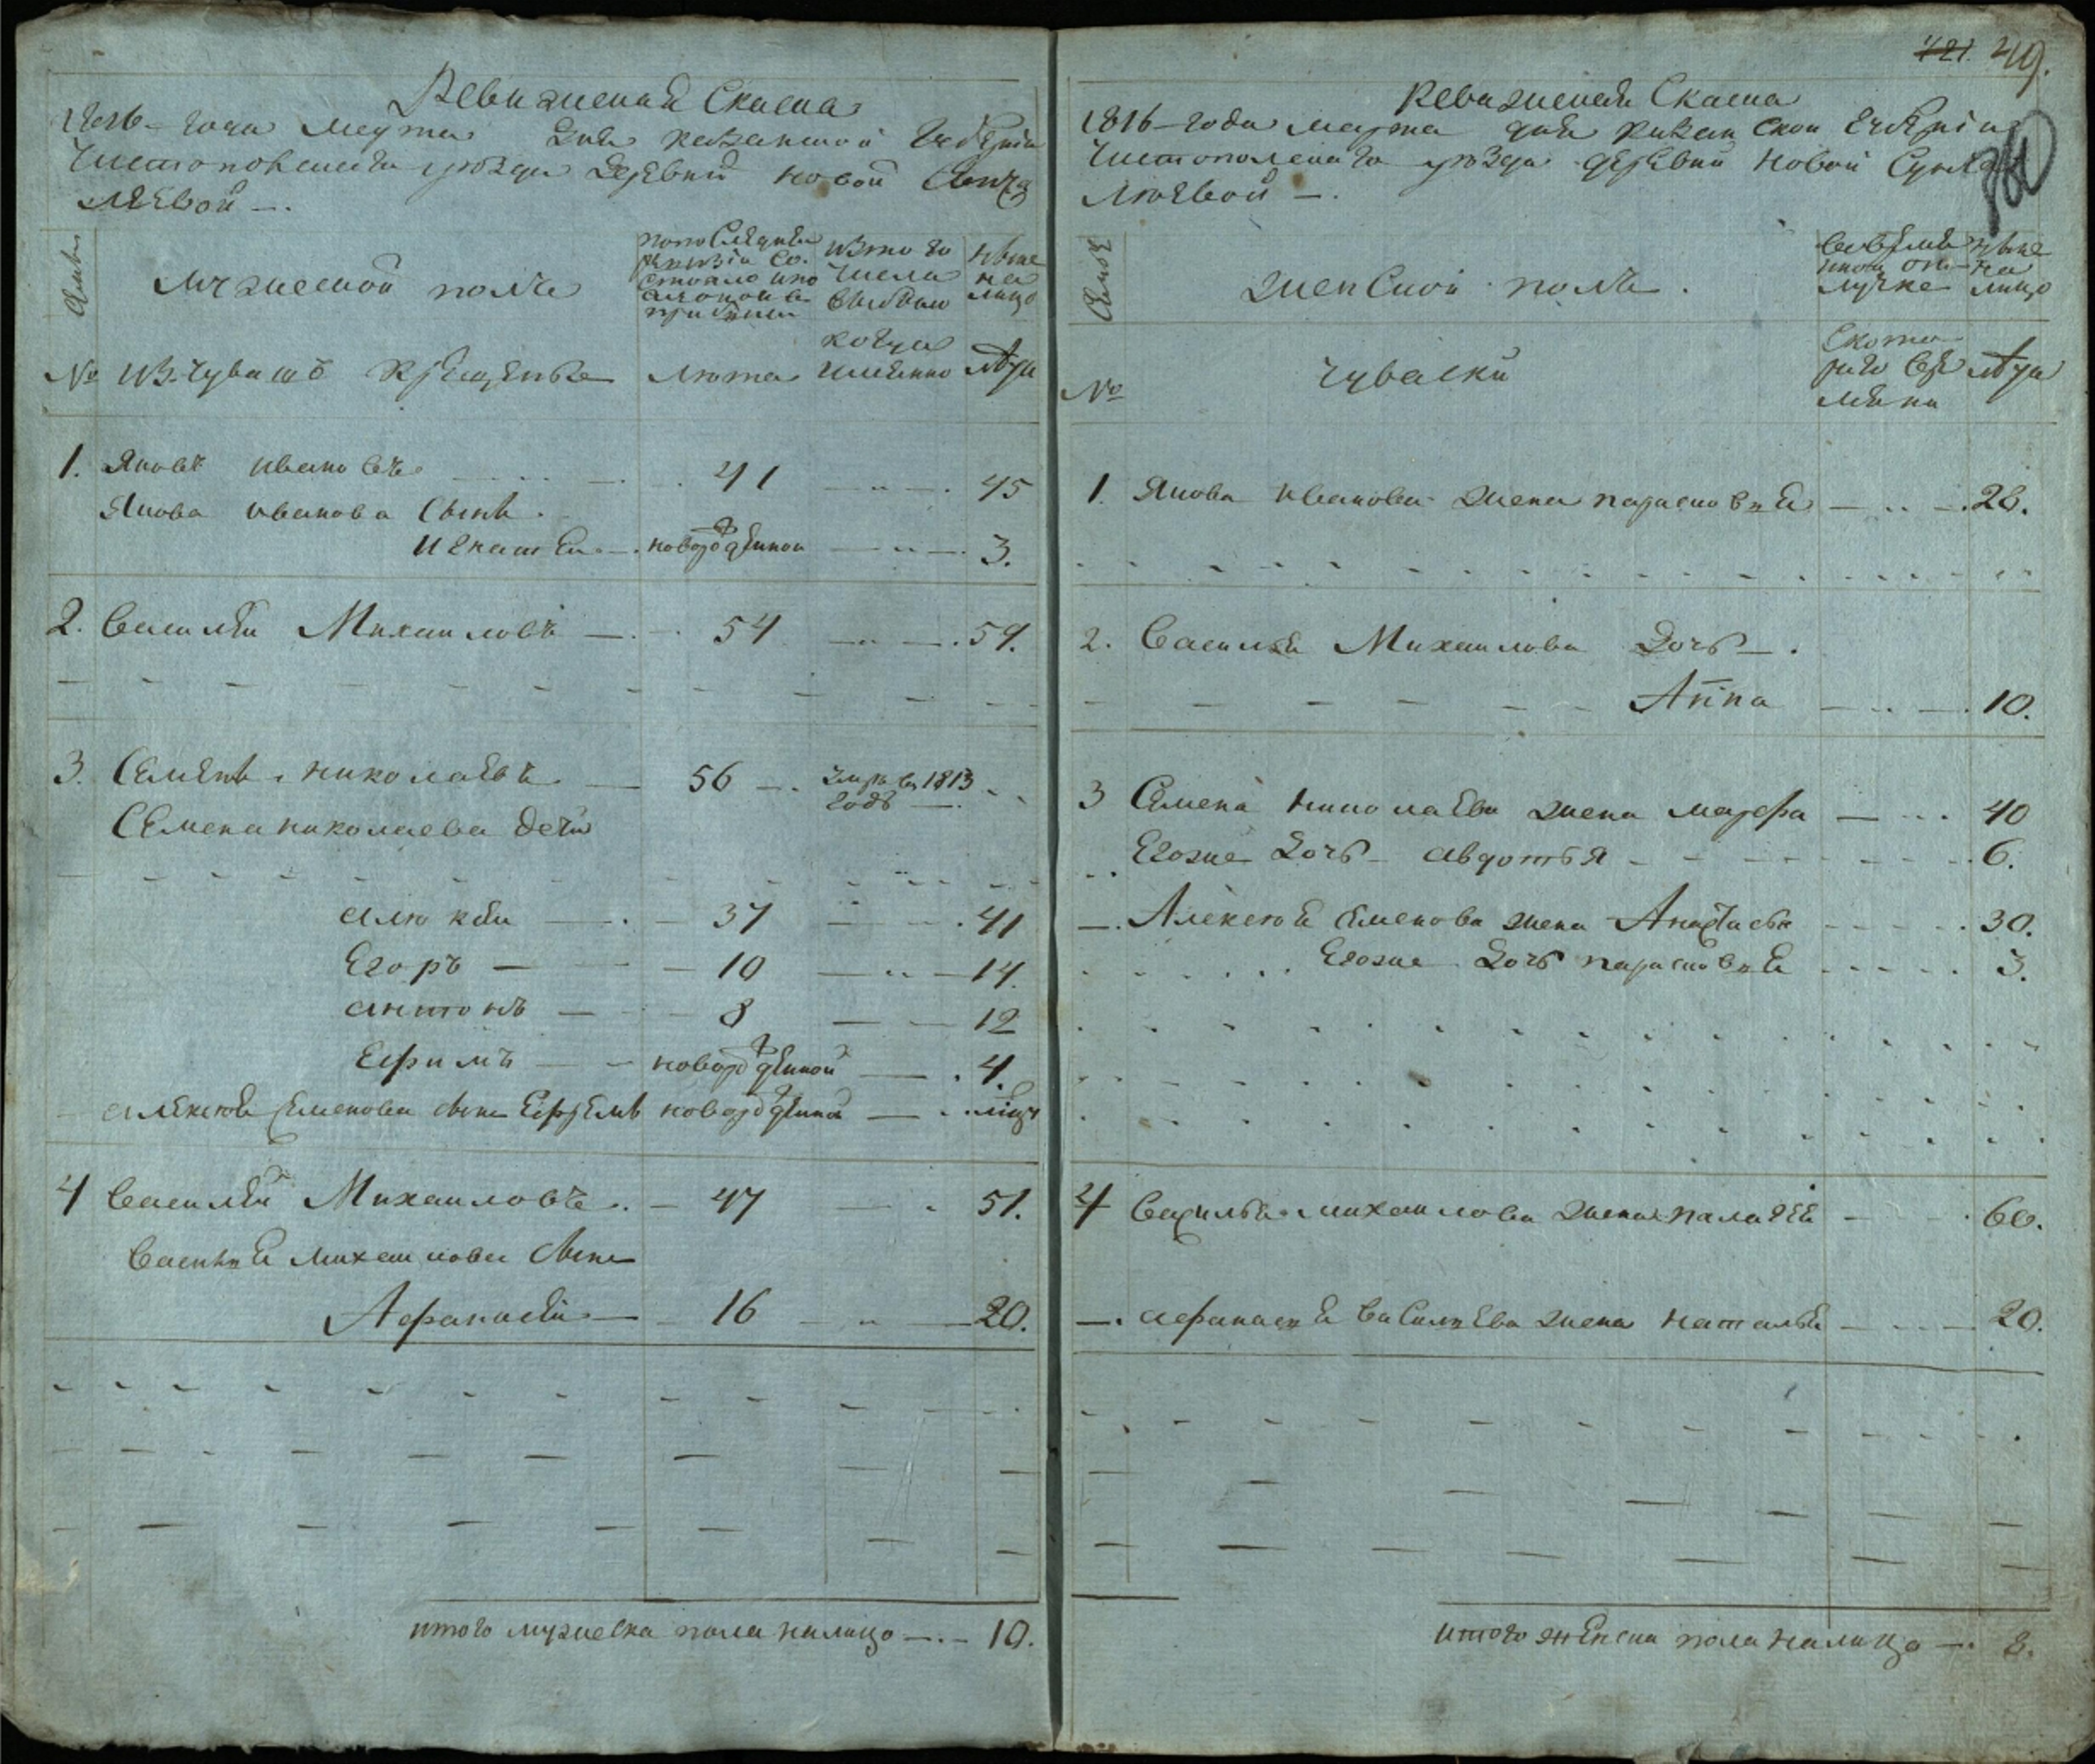 Ревижская Скаска
1816 года марта дня казанской Губерніи
Чистопольскаго уѣзда деревни новой
лѣевой
Семьи
Мужеской полъ
по последней ревизіи состояло и по оной прибыли
изъ того числа выбыло
ныне на лицо
№ изъ чувашъ крещеные
лета
когда именно
лѣта
1. Яковъ ивановъ 41 45
Якова иванова сынъ
игнатей новорожденной 3.
2. василей Михаиловъ 54 59.
3. Семенъ николаевъ 56 умре въ 1813 годѣ
Семена николаева дети
алюксей 37 41
Егоръ 10 14.
антонъ 8 12
Ефимъ новорожденной 4.
алексея семенова сынъ Ефремъ новорожденной
4 василей Михаиловъ 47 51.
василья михаилова сынъ
Афанасей 16 20.
итого мужеска пола налицо 10.
121. 49.
Ревижская Скаска
1816 года марта дня казанской Губерніи
Чистопольскаго уѣзда деревни новой
люевой
Семьи
женской полъ
во временной отлучке
ныне на лицо
№
чуваски
с котораго времени
лѣта
1. Якова иванова жена парасковья 26.
2. василья Михаилова дочь
Анна 10.
3 Семена николаева жена марфа 40
Егоже дочь авдотья 6.
Алексея семенова жена Анастасья 30.
Егоже дочь парасковья 3.
4 василья михаилова жена палагея 60.
афанасья васильева жена наталья 20.
итого женска пола налицо 8.